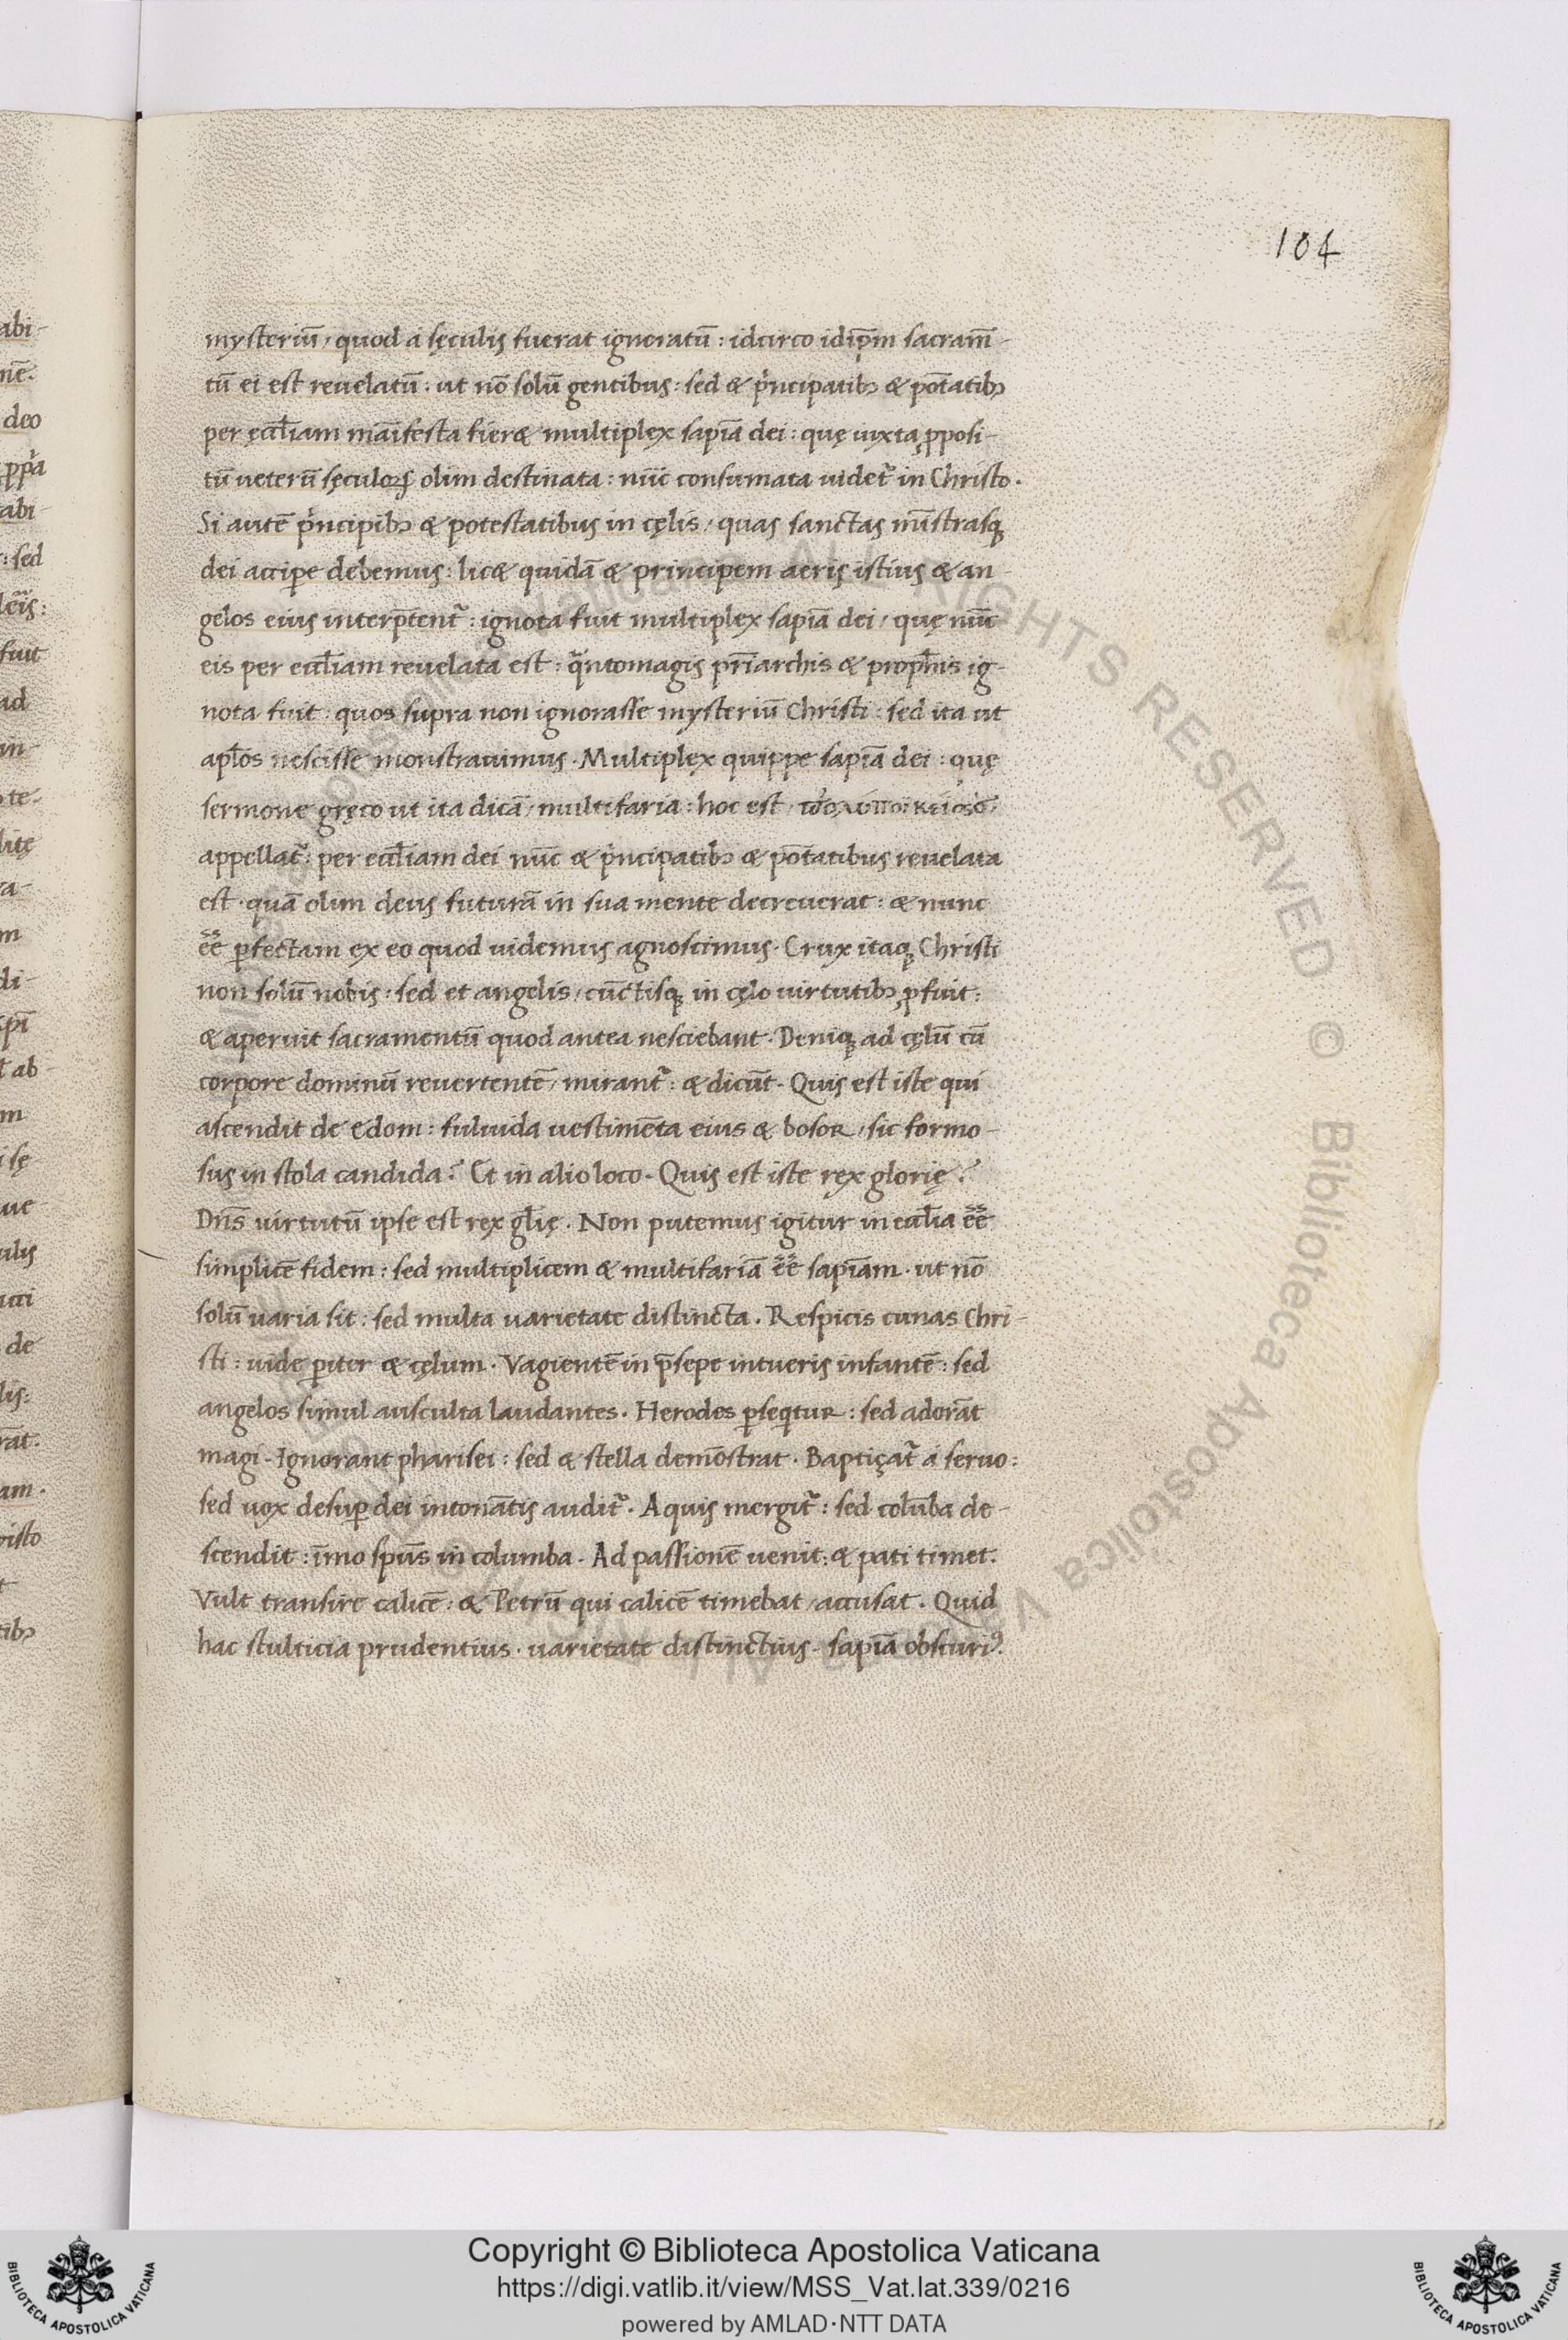 104
mysteriū, quod a sęculis fuerat ignoratū: idcirco idip̄m sacram̄-
tū ei est reuelatū. ut nō solū gentibus: sed & pͥncipatibꝫ & pot̄atibꝫ
per ęccl̄iam māifesta fier& multiplex sapīa dei: quę iuxta ꝓposi-
tū ueterū sęculoꝝ olim destinata: nūc consumata uidet᷑ in Christo.
Si autē pͥncipibꝫ & potestatibus in cęlis, quas sanctas mīstrasqꝫ
dei accipe debemus: lic& quidā & principem aeris istius & an-
gelos eius interp̄tent᷑: ignota fuit multiplex sapīa dei, quę nūc
eis per eccl̄iam reuelata est: qͣntomagis pr̄iarchis & proph̄is ig-
nota fuit. quos supra non ignorasse mysteriū Christi: sed ita ut
apl̄os nescisse monstrauimus. Multiplex quippe sapīa dei: quę
sermone gręco ut ita dicā, multifaria: hoc est,
appellat᷑: per eccl̄iam dei nūc & pͥncipatibꝫ & pot̄atibus reuelata
est. quā olim deus futurā in sua mente decreuerat: & nunc
ēē ꝑfectam ex eo quod uidemus agnoscimus. Crux itaqꝫ Christi
non solū nobis, sed et angelis, cūctisqꝫ in cęlo uirtutibꝫ ꝓfuit:
& aperuit sacramentū quod antea nesciebant. Deniqꝫ ad cęlū cū
corpore dominū reuertentē, mirant᷑: & dicūt. Quis est iste qui
ascendit de edom: fuluida uestimēta eius & bosor, sic formo-
sus in stola candida? Et in alio loco. Quis est iste rex glorię?
Dn̄s uirtutū ipse est rex gl̄ię. Non putemus igitur in eccl̄ia ēē
simplicē fidem: sed multiplicem & multifariā ēē sapīam. ut nō
solū uaria sit: sed multa uarietate distincta. Respicis cunas Chri-
sti: uide ꝑiter & cęlum. Vagientē in p̄sepe intueris infantē: sed
angelos simul ausculta laudantes. Herodes ꝑseqͥtur: sed adorāt
magi. Ignorant pharisei: sed & stella demōstrat. Baptiçat᷑ a seruo:
sed uox desuꝑ dei intonātis audit᷑. Aquis mergit᷑: sed colūba de-
scendit: īmo spūs in columba. Ad passionē uenit: & pati timet.
Vult transire calicē: & Petrū qui calicē timebat, accusat. Quid
hac stulticia prudentius. uarietate distinctius. sapīa obscuriꝰ.
abi-
nē.
deo
abi-
: sed
fuit
ad
in-
te.
m
di-
m
de
lis:
am.
Copyright © Biblioteca Apostolica Vaticana
https://digi.vatlib.it/view/MSS_Vat.lat.339/0216
powered by AMLAD·NTT DATA
BIBLIOTECA APOSTOLICA VATICANA
BIBLIOTECA APOSTOLICA VATICANA
ALL RIGHTS RESERVED © Biblioteca Apostolica Vaticana